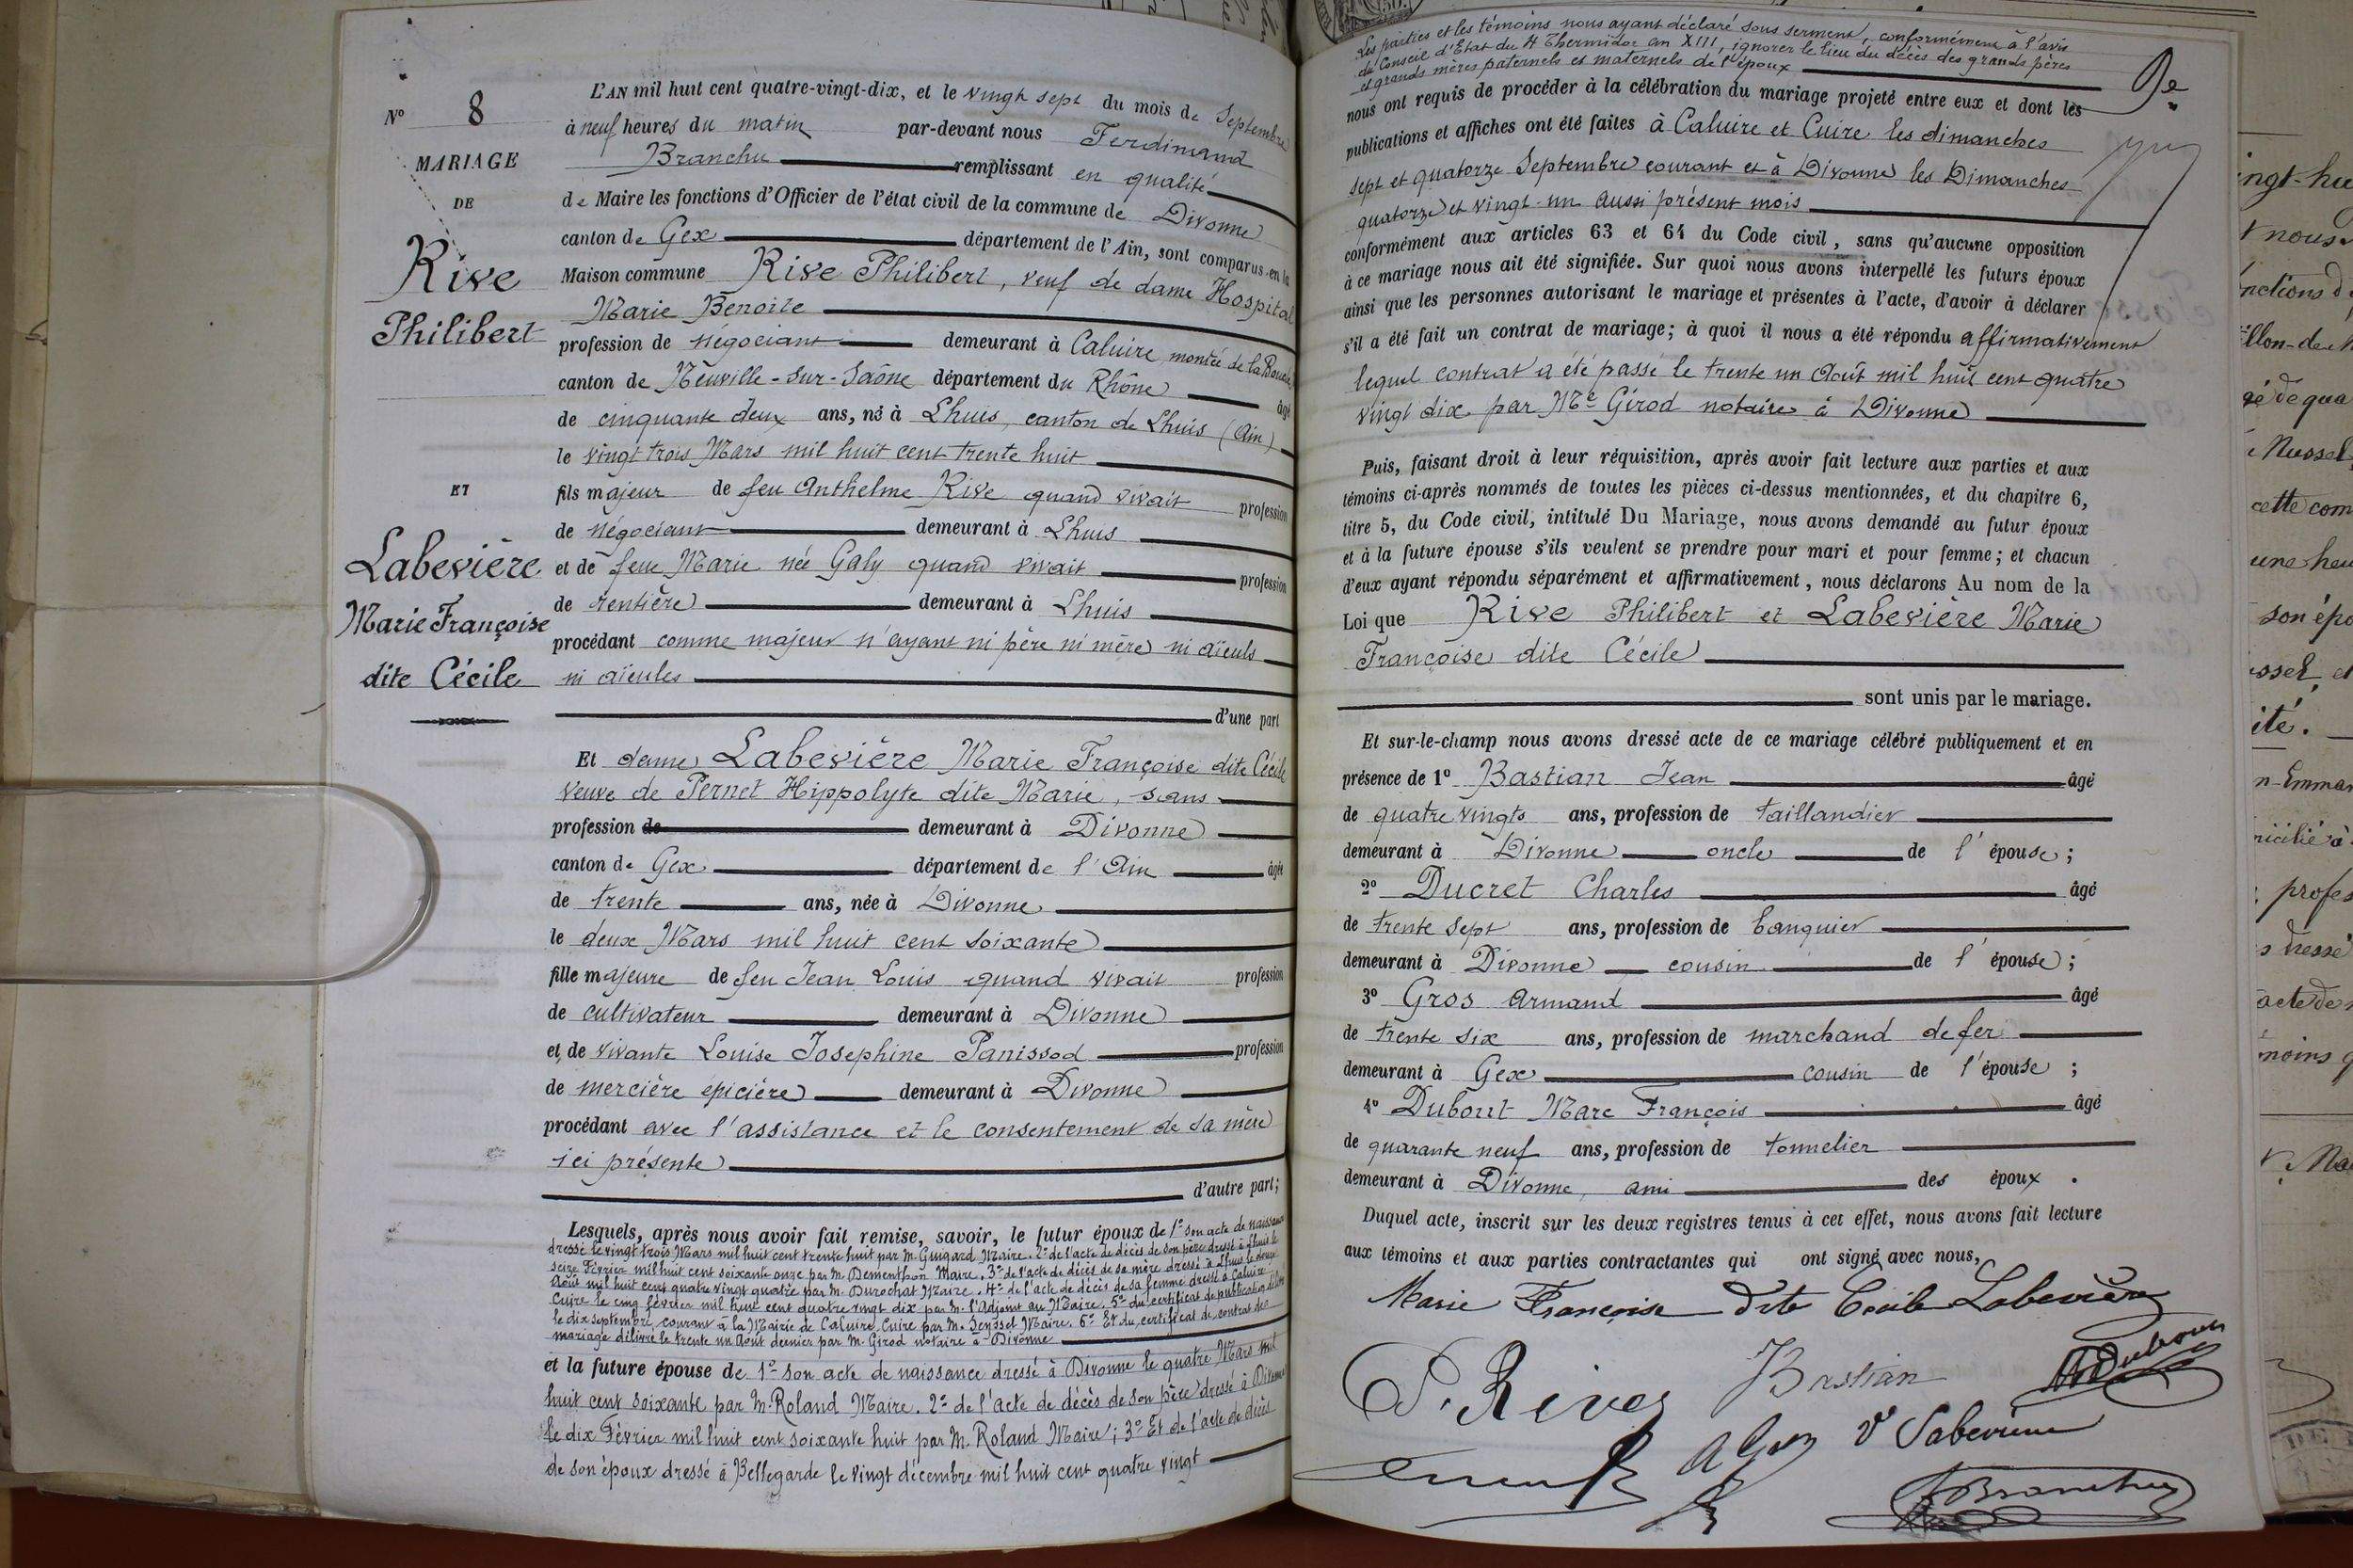 No 8
MARIAGE
DE
Rive
Philibert
ET
Labevière
Marie Françoise
dite Cécile
L'AN mil huit cent quatre-vingt-dix, et le vingt sept du mois de Septembre
à neuf heures du matin par-devant nous Ferdinand
Branchu remplissant en qualité
de Maire les fonctions d'Officier de l'état civil de la commune de Divonne
canton de Gex département de l'Ain, sont comparus en la
Maison commune Rive Philibert, veuf de dame Hospital
Marie Benoite
profession de négociant demeurant à Caluire, montée de la
canton de Neuville-sur-Saône département du Rhône âgé
de cinquante deux ans, né à Lhuis, canton de Lhuis (Ain)
le vingt trois Mars mil huit cent trente huit
fils majeur de feu Anthelme Rive quand vivait profession
de négociant demeurant à Lhuis
et de feue Marie née Galy quand vivait profession
de rentière demeurant à Lhuis
procédant comme majeur n'ayant ni père ni mère ni aïeuls
ni aïeules
d'une part
Et dame Labevière Marie Françoise dite Cécile
veuve de Pernet Hippolyte dite Marie, sans
profession de demeurant à Divonne
canton de Gex département de l'Ain âgée
de trente ans, née à Divonne
le deux Mars mil huit cent soixante
fille majeure de feu Jean Louis quand vivait profession
de cultivateur demeurant à Divonne
et de vivante Louise Josephine Panissod profession
de mercière épicière demeurant à Divonne
procédant avec l'assistance et le consentement de sa mère
ici présente
d'autre part;
Lesquels, après nous avoir fait remise, savoir, le futur époux de 1º son acte de naissance
dressé le vingt trois Mars mil huit cent trente huit par M. Guigard Maire. 2º de l'acte de décès de son père dressé à Lhuis le
seize Février mil huit cent soixante onze par M. Dementhon Maire. 3º de l'acte de décès de sa mère dressé à Lhuis le douze
Août mil huit cent quatre vingt quatre par M. Durochat Maire. 4º de l'acte de décès de sa femme dressé à Caluire
Cuire le cinq février mil huit cent quatre vingt dix par M. l'Adjoint au Maire. 5º du certificat de publication délivré
le dix septembre courant à la Mairie de Caluire Cuire par M. Seysset Maire. 6º Et du certificat de contrat de
mariage délivré le trente un Août dernier par M. Girod notaire à Divonne
et la future épouse de 1º son acte de naissance dressé à Divonne le quatre Mars mil
huit cent soixante par M. Roland Maire. 2º de l'acte de décès de son père dressé à Divonne
le dix Février mil huit cent soixante huit par M. Roland Maire; 3º Et de l'acte de décès
de son époux dressé à Bellegarde le vingt décembre mil huit cent quatre vingt
Les parties et les témoins nous ayant déclaré sous serment, conformément à l'avis
du Conseil d'Etat du 4 Thermidor an XIII, ignorer le lieu du décès des grands pères
et grands mères paternels et maternels de l'époux
nous ont requis de procéder à la célébration du mariage projeté entre eux et dont les
publications et affiches ont été faites à Caluire et Cuire les dimanches
sept et quatorze Septembre courant et à Divonne les Dimanches
quatorze et vingt-un aussi présent mois
conformément aux articles 63 et 64 du Code civil, sans qu'aucune opposition
à ce mariage nous ait été signifiée. Sur quoi nous avons interpellé les futurs époux
ainsi que les personnes autorisant le mariage et présentes à l'acte, d'avoir à déclarer
s'il a été fait un contrat de mariage; à quoi il nous a été répondu affirmativement
lequel contrat a été passé le trente un Août mil huit cent quatre
vingt dix par Me Girod notaire à Divonne
Puis, faisant droit à leur réquisition, après avoir fait lecture aux parties et aux
témoins ci-après nommés de toutes les pièces ci-dessus mentionnées, et du chapitre 6,
titre 5, du Code civil, intitulé Du Mariage, nous avons demandé au futur époux
et à la future épouse s'ils veulent se prendre pour mari et pour femme; et chacun
d'eux ayant répondu séparément et affirmativement, nous déclarons Au nom de la
Loi que Rive Philibert et Labevière Marie
Françoise dite Cécile
sont unis par le mariage.
Et sur-le-champ nous avons dressé acte de ce mariage célébré publiquement et en
présence de 1º Bastian Jean âgé
de quatre vingts ans, profession de taillandier
demeurant à Divonne oncle de l'épouse;
2º Ducret Charles âgé
de trente sept ans, profession de banquier
demeurant à Divonne cousin de l'épouse;
3º Gros Armand âgé
de trente six ans, profession de marchand de fer
demeurant à Gex cousin de l'épouse;
4º Dubout Marc François âgé
de quarante neuf ans, profession de tonnelier
demeurant à Divonne, ami des époux.
Duquel acte, inscrit sur les deux registres tenus à cet effet, nous avons fait lecture
aux témoins et aux parties contractantes qui ont signé avec nous,
Marie Françoise dite Cécile Labevière
P. Rive Bastian
Ve Labevière
Branchu